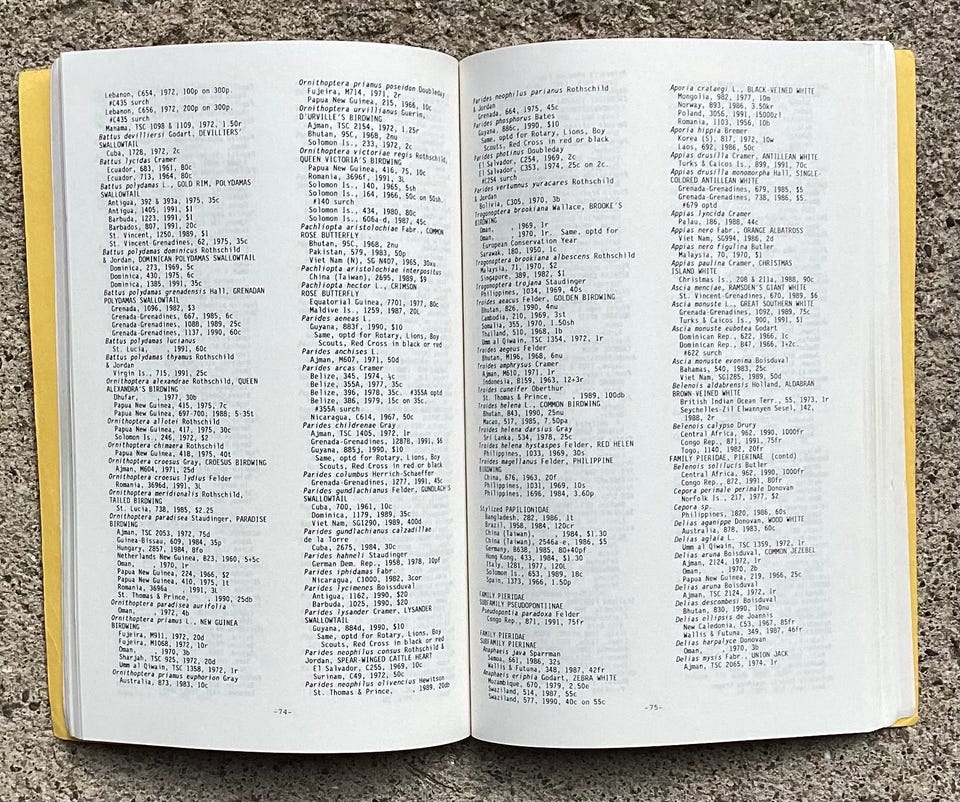 Lebanon, C654, 1972, 100p on 300p
#C435 surch
Lebanon, C656, 1972, 200p on 300p.
#C435 surch
Manama, TSC 1098 & 1109, 1972, 1.50r
Battus devilliersi Godart, DEVILLIERS'
SWALLOWTAIL
Cuba, 1728, 1972, 2c
Battus lycidas Cramer
Ecuador, 683, 1961, 80c
Ecuador, 713, 1964, 80c
Battus polydamas L., GOLD RIM, POLYDAMAS
SWALLOWTAIL
Antigua, 392 & 393a, 1975, 35c
Antigua, 1405, 1991, $1
Barbuda, 1223, 1991, $1
Barbados, 807, 1991, 20c
St. Vincent, 1250, 1989, $1
St. Vincent-Grenadines, 62, 1975, 35c
Battus polydamas dominicus Rothschild
& Jordan, DOMINICAN POLYDAMAS SWALLOWTAIL
Dominica, 273, 1969, 5c
Dominica, 430, 1975, 6c
Dominica, 1385, 1991, 35c
Battus polydamas grenadensis Hall, GRENADAN
POLYDAMAS SWALLOWTAIL
Grenada, 1096, 1982, $3
Grenada-Grenadines, 667, 1985, 6c
Grenada-Grenadines, 1088, 1989, 25c
Grenada-Grenadines, 1137, 1990, 60c
Battus polydamas lucianus
St. Lucia, , 1991, 60c
Battus polydamas thyamus Rothschild
& Jordan
Virgin Is., 715, 1991, 25c
Ornithoptera alexandrae Rothschild, QUEEN
ALEXANDRA'S BIRDWING
Dhufar, , 1977, 30b
Papua New Guinea, 415, 1975, 7c
Papua New Guinea, 697-700; 1988; 5-35t
Ornithoptera allotei Rothschild
Papua New Guinea, 417, 1975, 30c
Solomon Is., 246, 1972, $2
Ornithoptera chimaera Rothschild
Papua New Guinea, 418, 1975, 40t
Ornithoptera croesus Gray, CROESUS BIRDWING
Ajman, M604, 1971, 25d
Ornithoptera croesus lydius Felder
Romania, 3696d, 1991, 3L
Ornithoptera meridionalis Rothschild,
TAILED BIRDWING
St. Lucia, 738, 1985, $2.25
Ornithoptera paradisea Staudinger, PARADISE
BIRDWING
Ajman, TSC 2053, 1972, 75d
Guinea-Bissau, 609, 1984, 35p
Hungary, 2857, 1984, 8fo
Netherlands New Guinea, B23, 1960, 5+5c
Oman, , 1970, 1r
Papua New Guinea, 224, 1966, $2
Papua New Guinea, 410, 1975, 1t
Romania, 3696a , 1991, 3L
St. Thomas & Prince, , 1990, 25db
Ornithoptera paradisea aurifolia
Oman, , 1972, 4b
Ornithoptera priamus L., NEW GUINEA
BIRDWING
Fujeira, M911, 1972, 20d
Fujeira, M1068, 1972, 10r
Oman, , 1970, 3b
Sharjah, TSC 925, 1972, 20d
Umm al Qiwain, TSC 1358, 1972, 1r
Ornithoptera priamus euphorion Gray
Australia, 873, 1983, 10c
-74-
Ornithoptera priamus poseidon Doubleday
Fujeira, M714, 1971, 2r
Papua New Guinea, 215, 1966, 10c
Ornithoptera urvillianus Guerin,
D'URVILLE'S BIRDWING
Ajman, TSC 2154, 1972, 1.25r
Bhutan, 95C, 1968, 2nu
Solomon Is., 233, 1972, 2c
Ornithoptera victoriae regis Rothschild,
QUEEN VICTORIA'S BIRDWING
Papua New Guinea, 416, 75, 10c
Romania, 3696f, 1991, 3L
Solomon Is., 140, 1965, 5sh
Solomon Is., 164, 1966, 50c on 50sh.
#140 surch
Solomon Is., 434, 1980, 80c
Solomon Is., 606a-d, 1987, 45c
Pachliopta aristolochiae Fabr., COMMON
ROSE BUTTERFLY
Bhutan, 95C, 1968, 2nu
Pakistan, 579, 1983, 50p
Viet Nam (N), SG N407, 1965, 30xu
Pachliopta aristolochiae interpositus
China (Taiwan), 2695, 1989, $9
Pachliopta hector L., CRIMSON
ROSE BUTTERFLY
Equatorial Guinea, 7701, 1977, 80c
Maldive Is., 1259, 1987, 20L
Parides aeneas L.
Guyana, 883f, 1990, $10
Same, optd for Rotary, Lions, Boy
Scouts, Red Cross in black or red
Parides anchises L.
Ajman, M607, 1971, 50d
Parides arcas Cramer
Belize, 345, 1974, ½c
Belize, 355A, 1977, 35c
Belize, 396, 1978, 35c. #355A optd
Belize, 386, 1979, 15c on 35c.
#355A surch
Nicaragua, C614, 1967, 50c
Parides childrenae Gray
Ajman, TSC 1405, 1972, 1r
Grenada-Grenadines, 1287B, 1991, $6
Guyana, 885j, 1990, $10
Same, optd for Rotary, Lions, Boy
Scouts, Red Cross in red or black
Parides columbus Herrich-Schaeffer
Grenada-Grenadines, 1277, 1991, 45c
Parides gundlachianus Felder, GUNDLACH'S
SWALLOWTAIL
Cuba, 700, 1961, 10c
Dominica, 1179, 1989, 35c
Viet Nam, SG1290, 1989, 400d
Parides gundlachianus calzadillae
de la Torre
Cuba, 2675, 1984, 30c
Parides hahneli Staudinger
German Dem. Rep., 1958, 1978, 10pf
Parides iphidamas Fabr.
Nicaragua, C1000, 1982, 3cor
Parides lycimenes Boisduval
Antigua, 1162, 1990, $20
Barbuda, 1025, 1990, $20
Parides lysander Cramer, LYSANDER
SWALLOWTAIL
Guyana, 884d, 1990, $10
Same, optd for Rotary, Lions, Boy
Scouts, Red Cross in black or red
Parides neophilus consus Rothschild &
Jordan, SPEAR-WINGED CATTLE-HEART
El Salvador, C255, 1969, 10c
Surinam, C49, 1972, 50c
Parides neophilus olivencius Hewitson
St. Thomas & Prince, , 1989, 20db
Parides neophilus parianus Rothschild
& Jordan
Grenada, 664, 1975, 45c
Parides phosphorus Bates
Guyana, 886c, 1990, $10
Same, optd for Rotary, Lions, Boy
Scouts, Red Cross in red or black
Parides photinus Doubleday
El Salvador, C254, 1969, 2c
El Salvador, C353, 1974, 25c on 2c.
#C254 surch
Parides vertumnus yuracares Rothschild
& Jordan
Bolivia, C305, 1970, 3b
Trogonoptera brookiana Wallace, BROOKE'S
BIRDWING
Oman, , 1969, 1r
Oman, , 1970, 1r. Same, optd for
European Conservation Year
Sarawak, 180, 1950, 1c
Trogonoptera brookiana albescens Rothschild
Malaysia, 71, 1970, $2
Singapore, 389, 1982, $1
Trogonoptera trojana Staudinger
Philippines, 1034, 1969, 40s
Troides aeacus Felder, GOLDEN BIRDWING
Bhutan, 826, 1990, 4nu
Cambodia, 210, 1969, 3st
Somalia, 355, 1970, 1.50sh
Thailand, 510, 1968, 1b
Umm al Qiwain, TSC 1354, 1972, 1r
Troides aegeus Felder
Bhutan, M196, 1968, 6nu
Troides amphrysus Cramer
Ajman, M610, 1971, 1r
Indonesia, B159, 1963, 12+3r
Troides cuneifer Oberthur
St. Thomas & Prince, , 1989, 100db
Troides helena L., COMMON BIRDWING
Bhutan, 843, 1990, 25nu
Macao, 517, 1985, 7.50pa
Troides helena darsius Gray
Sri Lanka, 534, 1978, 25c
Troides helena hystaspes Felder, RED HELEN
Philippines, 1033, 1969, 30s
Troides magellanus Felder, PHILIPPINE
BIRDWING
China, 676, 1963, 20f
Philippines, 1031, 1969, 10s
Philippines, 1696, 1984, 3.60p
Stylized PAPILIONIDAE
Bangladesh, 282, 1986, 1t
Brazil, 1958, 1984, 120cr
China (Taiwan), , 1984, $1.30
China (Taiwan), 2546a-e, 1986, $5
Germany, B638, 1985, 80+40pf
Hong Kong, 433, 1984, $1.30
Italy, 1281, 1977, 120L
Solomon Is., 653, 1989, 18c
Spain, 1373, 1966, 1.50p
FAMILY PIERIDAE
SUBFAMILY PSEUDOPONTIINAE
Pseudopontia paradoxa Felder
Congo Rep., 871, 1991, 75fr
FAMILY PIERIDAE
SUBFAMILY PIERINAE
Anaphaeis java Sparrman
Samoa, 661, 1986, 32s
Wallis & Futuna, 348, 1987, 42fr
Anaphaeis eriphia Godart, ZEBRA WHITE
Mozambique, 670, 1979, 2.50e
Swaziland, 514, 1987, 55c
Swaziland, 577, 1990, 40c on 55c
-75-
Aporia crataegi L., BLACK-VEINED WHITE
Mongolia, 982, 1977, 10m
Norway, 893, 1986, 3.50kr
Poland, 3056, 1991, 15000zl
Romania, 1103, 1956, 10b
Aporia hippia Bremer
Korea (S), 817, 1972, 10w
Laos, 692, 1986, 50c
Appias drusilla Cramer, ANTILLEAN WHITE
Turks & Caicos Is., 899, 1991, 70c
Appias drusilla monomorpha Hall, SINGLE-
COLORED ANTILLEAN WHITE
Grenada-Grenadines, 679, 1985, $5
Grenada-Grenadines, 738, 1986, $5.
#679 optd
Appias lyncida Cramer
Palau, 186, 1988, 44c
Appias nero Fabr., ORANGE ALBATROSS
Viet Nam, SG994, 1986, 2d
Appias nero figulina Butler
Malaysia, 70, 1970, $1
Appias paulina Cramer, CHRISTMAS
ISLAND WHITE
Christmas Is., 208 & 211a, 1988, 90c
Ascia menciae, RAMSDEN'S GIANT WHITE
St. Vincent-Grenadines, 670, 1989, $6
Ascia monuste L., GREAT SOUTHERN WHITE
Grenada-Grenadines, 1092, 1989, 75c
Turks & Caicos Is., 900, 1991, $1
Ascia monuste eubotea Godart
Dominican Rep., 622, 1966, 1c
Dominican Rep., B47, 1966, 1+2c.
#622 surch
Ascia monuste evonima Boisduval
Bahamas, 540, 1983, 25c
Viet Nam, SG1285, 1989, 50d
Belenois aldabrensis Holland, ALDABRAN
BROWN-VEINED WHITE
British Indian Ocean Terr., 55, 1973, 1r
Seychelles-Zil Elwannyen Sesel, 142,
1988, 2r
Belenois calypso Drury
Central Africa, 962, 1990, 1000fr
Congo Rep., 871, 1991, 75fr
Togo, 1140, 1982, 20fr
FAMILY PIERIDAE, PIERINAE (contd)
Belenois solilucis Butler
Central Africa, 962, 1990, 1000fr
Congo Rep., 872, 1991, 80fr
Cepora perimale perimale Donovan
Norfolk Is., 217, 1977, $2
Cepora sp.
Philippines, 1820, 1986, 60s
Delias aganippe Donovan, WOOD WHITE
Australia, 878, 1983, 60c
Delias aglaia L.
Umm al Qiwain, TSC 1359, 1972, 1r
Delias aruna Boisduval, COMMON JEZEBEL
Ajman, 2124, 1972, 1r
Oman, , 1970, 2b
Papua New Guinea, 219, 1966, 25c
Delias aruna Boisduval
Ajman, TSC 2124, 1972, 1r
Delias descombesi Boisduval
Bhutan, 830, 1990, 10nu
Delias ellipsis de Joannis
New Caledonia, C53, 1967, 85fr
Wallis & Futuna, 349, 1987, 46fr
Delias harpalyce Donovan
Oman, , 1970, 3b
Delias mysis Fabr., UNION JACK
Ajman, TSC 2065, 1974, 1r